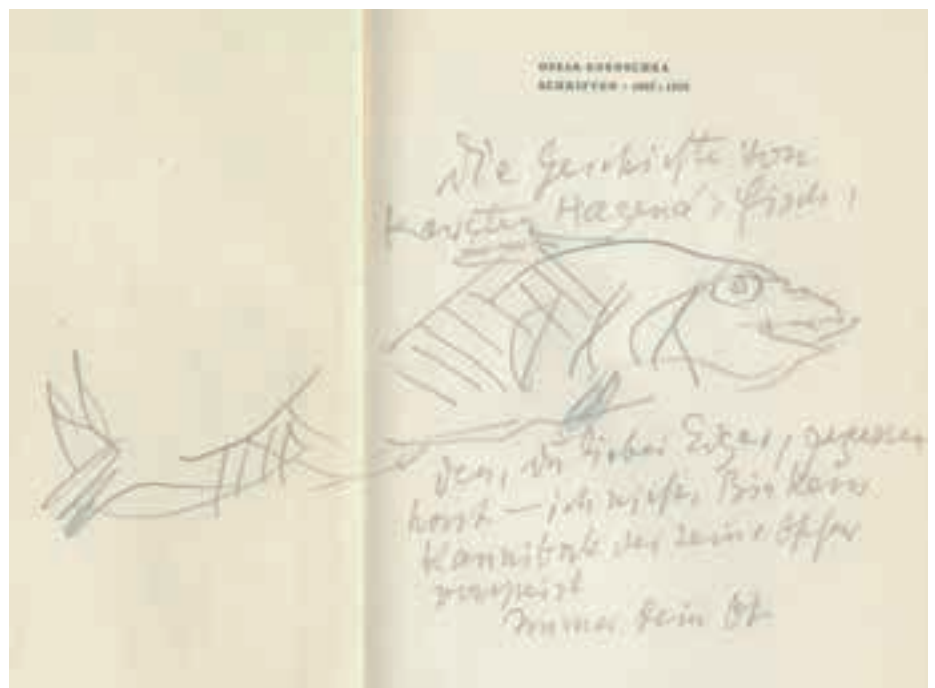 OSKAR KOKOSCHKA
SCHRIFTEN · 1907–1955
Die Geschichte von
Hagena's Fisch,
den, du lieber Edgar, gegessen
hast — ich nicht. Bin kein
Kannibale der seine Opfer
verspeist
Immer dein OK